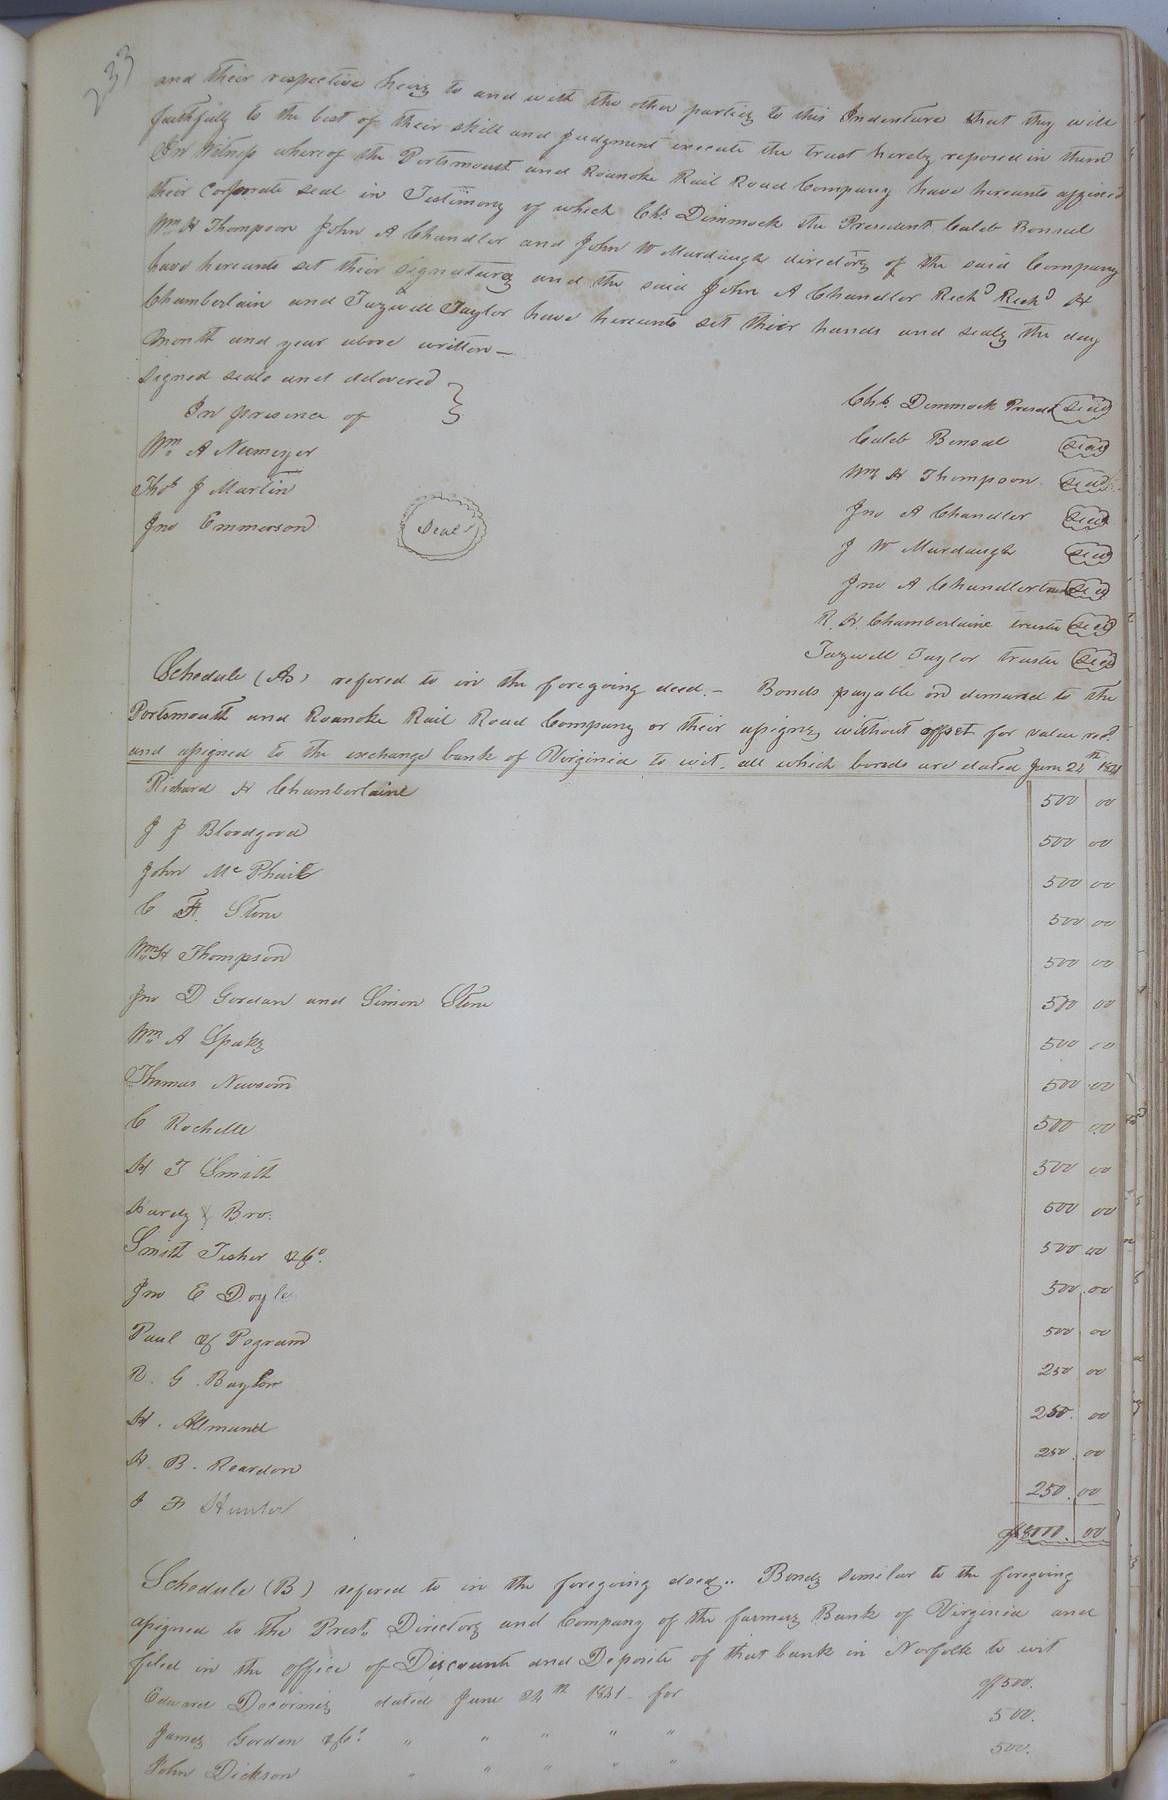 233
and their respective heirs to and with the other parties to this Indenture that they will
faithfully to the best of their skill and Judgment execute the trust hereby reposed in them
In Witness whereof the Portsmouth and Roanoke Rail Road Company have hereunto affixed
their Corporate seal in Testimony of which Chs. Dimmock the President Caleb Bonsal
Wm. H Thompson John A Chandler and John W Murdaugh directors of the said Company
have hereunto set their signatures and the said John A Chandler Richd Richd H
Chamberlain and Tazwell Taylor have hereunto set their hands and seals the day
Month and year above written —
Signed seald and delivered
In presence of
Chs. Dimmock Presdt Seal
Wm. A Neimeyer
Caleb Bonsal Seal
Thos J Martin
Wm H Thompson Seal
Jno Emmerson
Seal
Jno A Chandler Seal
J W Murdaugh Seal
Jno A Chandler Seal
R. H. Chamberlaine trustee Seal
Tazwell Taylor trustee Seal
Schedule (A) refered to in the foregoing deed. — Bonds payable on demand to the
Portsmouth and Roanoke Rail Road Company or their assigns without offset for value recd
and assigned to the exchange bank of Virginia to wit. all which bonds are dated June 24th 1841
Richard H Chamberlaine 500 00
J J Bloodgood 500 00
John Mc Phail 500 00
C F. Stone 500 00
Wm. H Thompson 500 00
Jno D Gordan and Simon Stone 500 00
Wm. A Spaks 500 00
Thomas Newsom 500 00
C Rochelle 500 00
H T Smith 500 00
Hardy & Bro. 500 00
Smith Tisher & Co. 500 00
Jno E Doyle 500 00
Paul & Pegram 500 00
R. G. Baylor 250 00
H. Allmand 250. 00
H. B. Reardon 250. 00
J F Hunter 250. 00
$8000. 00
Schedule (B) refered to in the foregoing deed.. Bonds similar to the foregoing
assigned to the Prest. Directors and Company of the farmers Bank of Virginia and
filed in the office of Discount and Deposite of that bank in Norfolk to wit
Edward Decormis dated June 24th 1841 for $500.
James Gordon & Co. " " " " " 500.
John Dickson " " " " " 500.